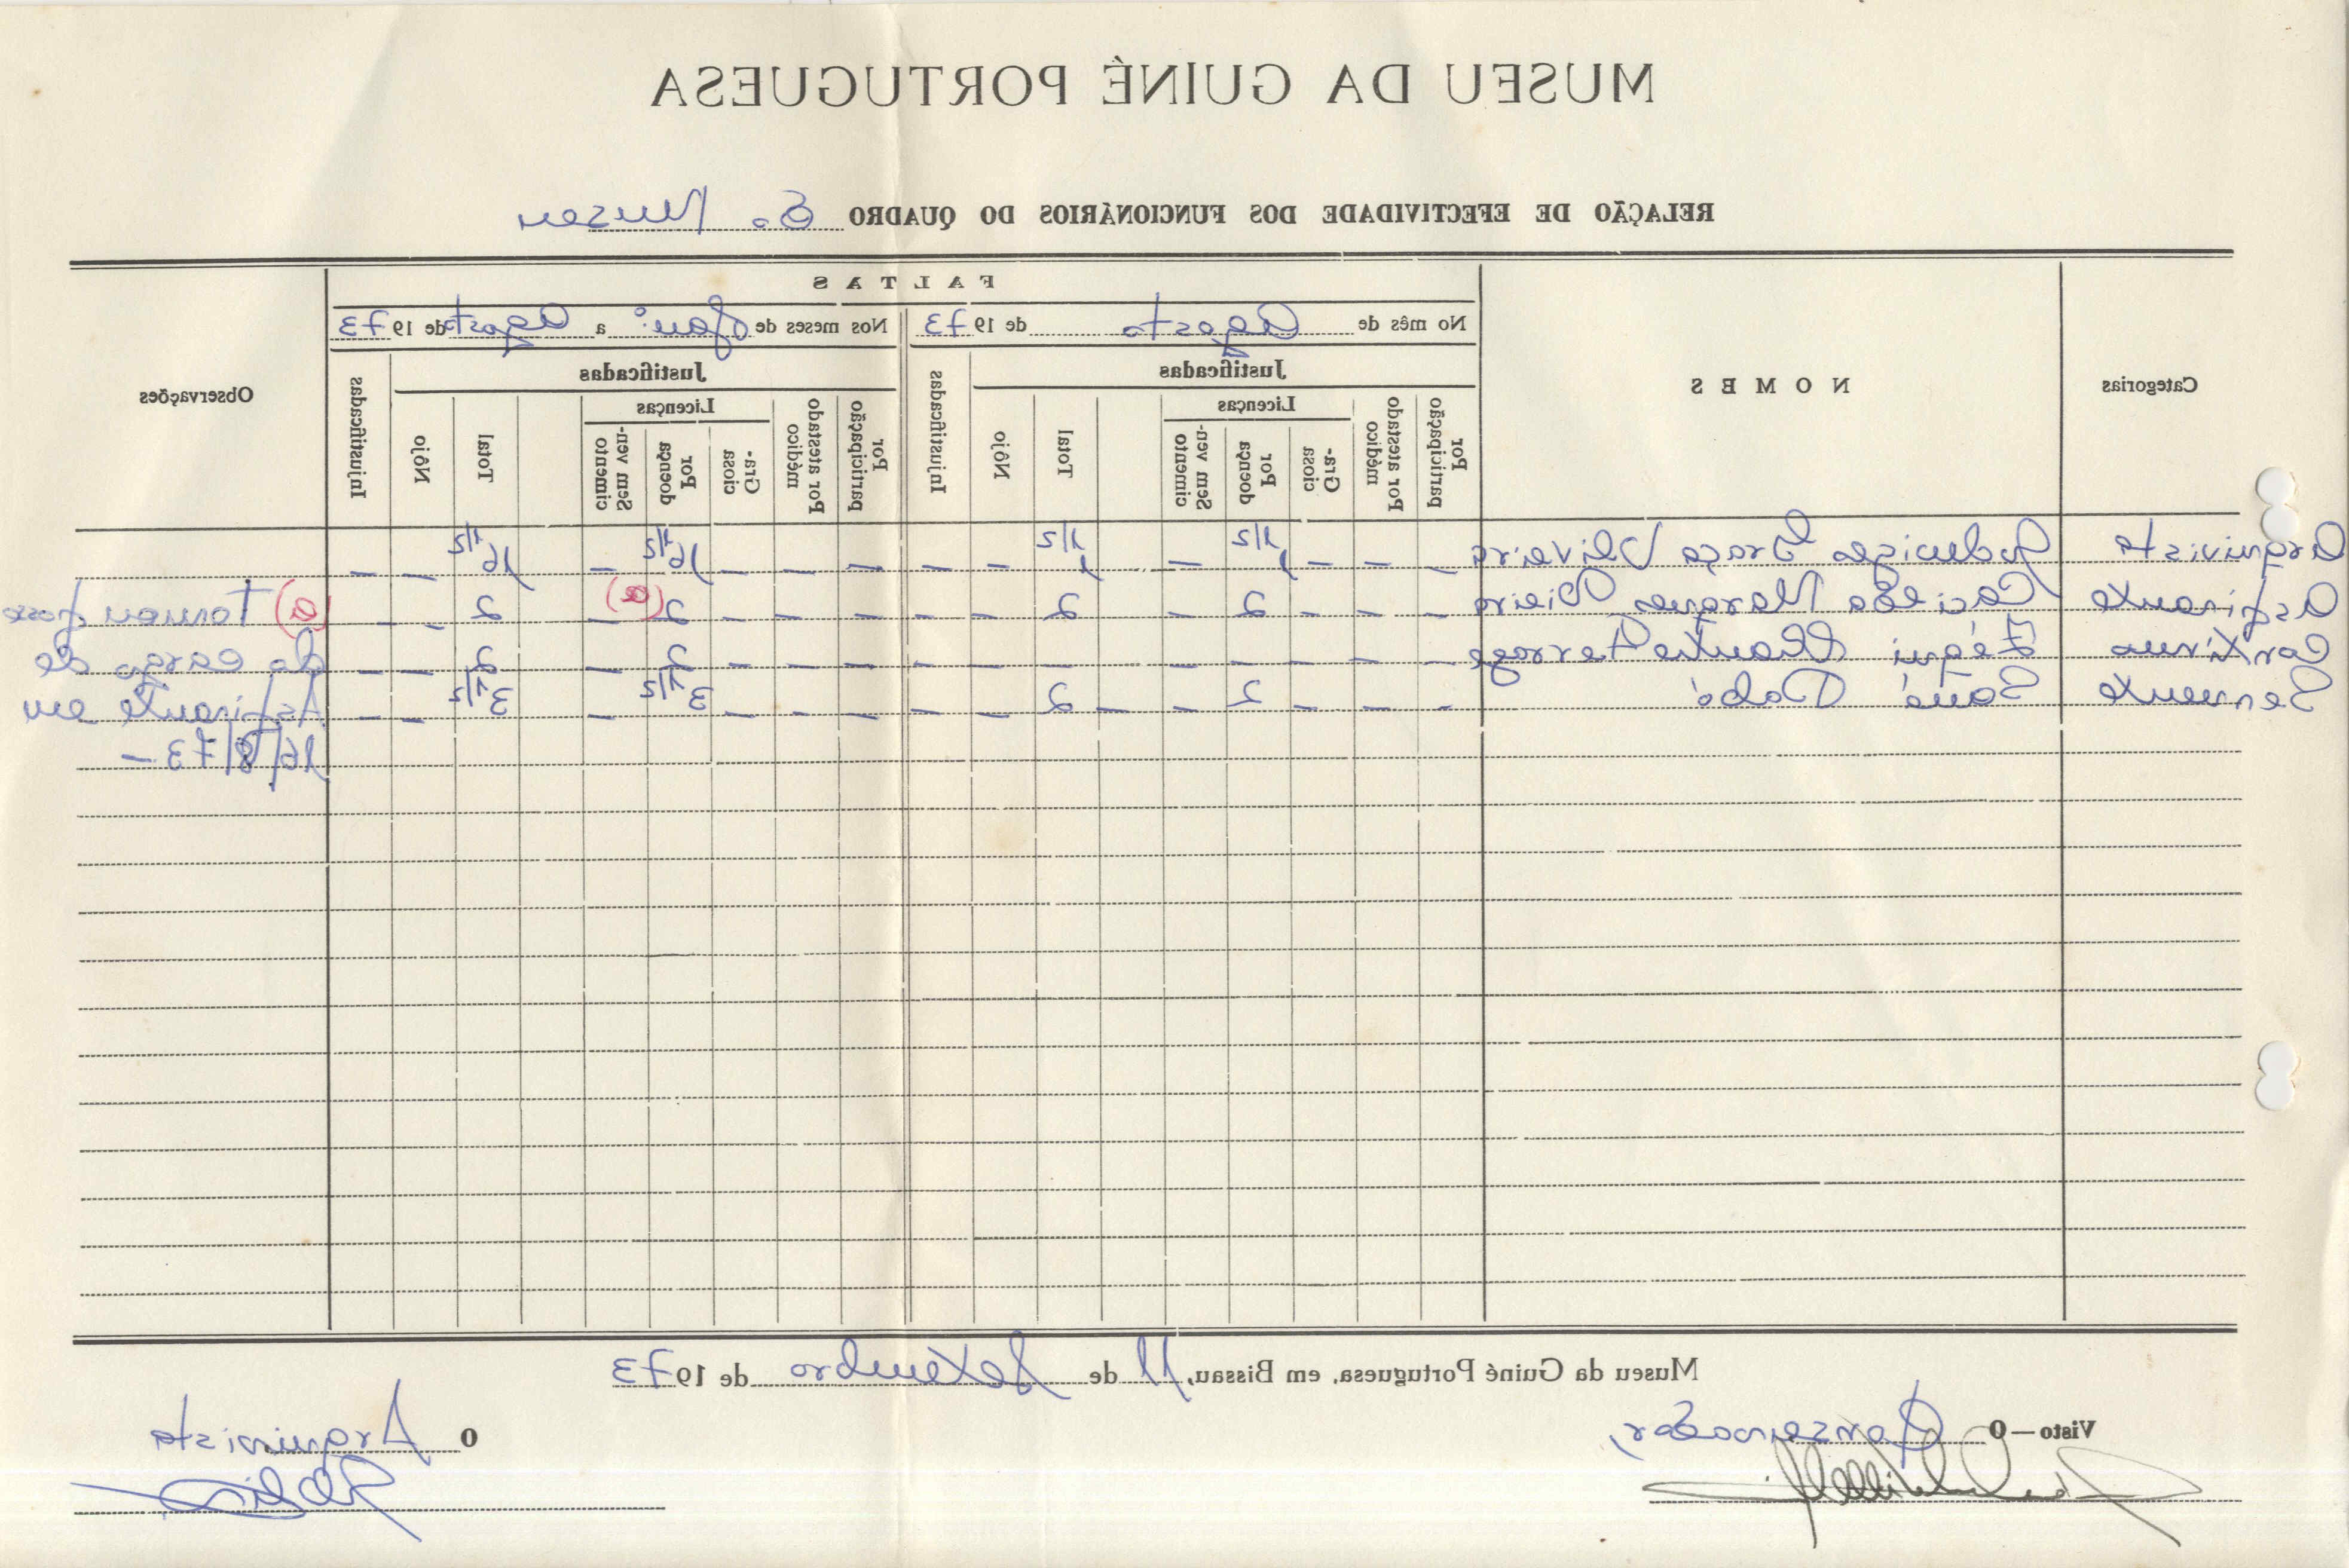 MUSEU DA GUINÉ PORTUGUESA
RELAÇÃO DE EFECTIVIDADE DOS FUNCIONÁRIOS DO QUADRO do Museu
Categorias
NOMES
FALTAS
Observações
No mês de Agosto de 1973
Nos meses de Jan: a Agosto de 1973
Justificadas
Injustificadas
Justificadas
Injustificadas
Por participação
Por atestado médico
Licenças
Graciosa
Por doença
Sem vencimento
Total
Nôjo
Por participação
Por atestado médico
Licenças
Graciosa
Por doença
Sem vencimento
Total
Nôjo
Arquivista Graça Oliveira – – – 1 1/2 – 1 1/2 – – – – – 16 1/2 – 16 1/2 – –
Aspirante Marques Vieira – – – 2 – – 2 – – – – – 2 (a) – 2 – – (a) Tomou posse
Duarte – – – – – – – – – – – – 2 – 2 – – do cargo de
Servente Sané Dabó – – – 2 – – 2 – – – – – 3 1/2 – 3 1/2 – – Aspirante em
16/8/73 –
Museu da Guiné Portuguesa, em Bissau, 11 de Setembro de 1973
Visto — O Conservador,
O Arquivista